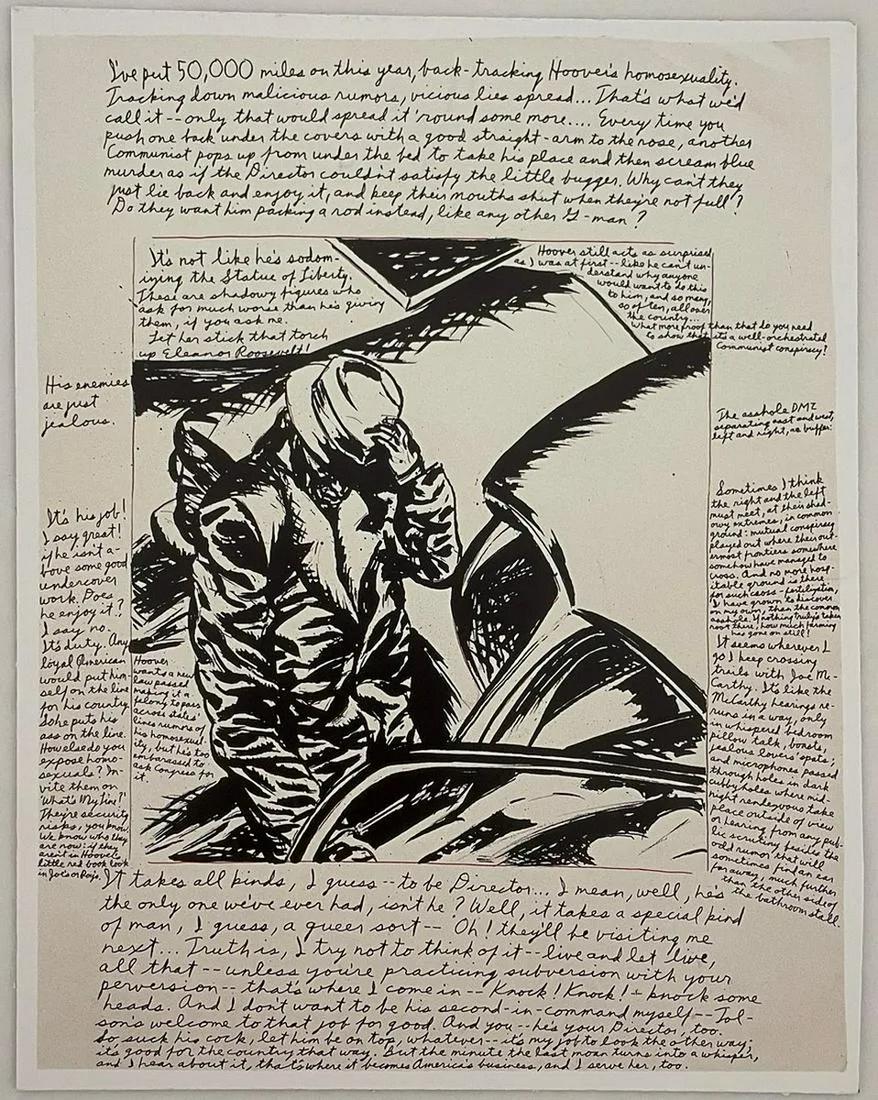 I've put 50,000 miles on this year, back-tracking Hoover's homosexuality.
Tracking down malicious rumors, vicious lies spread... That's what we'd
call it -- only that would spread it 'round some more.... Every time you
push one back under the covers with a good straight-arm to the nose, another
Communist pops up from under the bed to take his place and then scream blue
murder as if the Director couldn't satisfy the little bugger. Why can't they
just lie back and enjoy it, and keep their mouths shut when they're not full?
Do they want him packing a rod instead, like any other G-man?
It's not like he's sodom-
izing the Statue of Liberty.
These are shadowy figures who
ask for much worse than he's giving
them, if you ask me.
Let her stick that torch
up Eleanor Roosevelt!
Hoover still acts as surprised
as I was at first -- like he can't un-
derstand why anyone
would want to do this
to him, and so many,
so often, all over
the country...
What more proof than that do you need
to show that it's a well-orchestrated
Communist conspiracy?
His enemies
are just
jealous.
The asshole DMZ
separating east and west,
left and right, as buffer.
It's his job!
I say great!
if he isn't a-
bove some good
undercover
work. Does
he enjoy it?
I say no.
It's duty. Any
loyal American
would put him-
self on the line
for his country,
so he puts his
ass on the line.
How else do you
expose homo-
sexuals? In-
vite them on
'What's My Line?'
They're security
risks, you know.
We know who they
are now: if they
aren't in Hoover's
little red book look
in
Hoover
wants a new
law passed
making it a
felony to pass
across states'
lines rumors of
his homosexual-
ity, but he's too
embarassed to
ask Congress for
it.
Sometimes I think
the right and the left
must meet, at their shad-
owy extremes, in common
ground: mutual conspiracy
played out where their out-
ermost frontiers somewhere
somehow have managed to
cross. And no more hosp-
itable ground is there
for such cross-fertilization,
I have grown to discover
on my own, than the common
asshole. If nothing truly's taken
root there, how much farming
has gone on still!
It seems wherever I
go I keep crossing
trails with Joe Mc-
Carthy. It's like the
McCarthy hearings re-
runs in a way, only
in whispered bedroom
pillow talk, boasts,
jealous lovers' spats;
and microphones passed
through holes in dark
cubbyholes where mid-
night rendezvous take
place outside of view
or hearing from any pub-
lic scrutiny besides the
odd rumor that will
sometimes find an ear
far away, much further
than the other side of
the bathroom stall.
It takes all kinds, I guess -- to be Director... I mean, well, he's
the only one we've ever had, isn't he? Well, it takes a special kind
of man, I guess, a queer sort -- Oh! they'll be visiting me
next... Truth is, I try not to think of it -- live and let live,
all that -- unless you're practicing subversion with your
perversion -- that's where I come in -- Knock! Knock! - knock some
heads. And I don't want to be his second-in-command myself -- Tol-
son's welcome to that job for good. And you -- he's your Director, too.
So suck his cock, let him be on top, whatever -- it's my job to look the other way;
it's good for the country that way. But the minute the last moan turns into a whisper,
and I hear about it, that's where it becomes America's business, and I serve her, too.